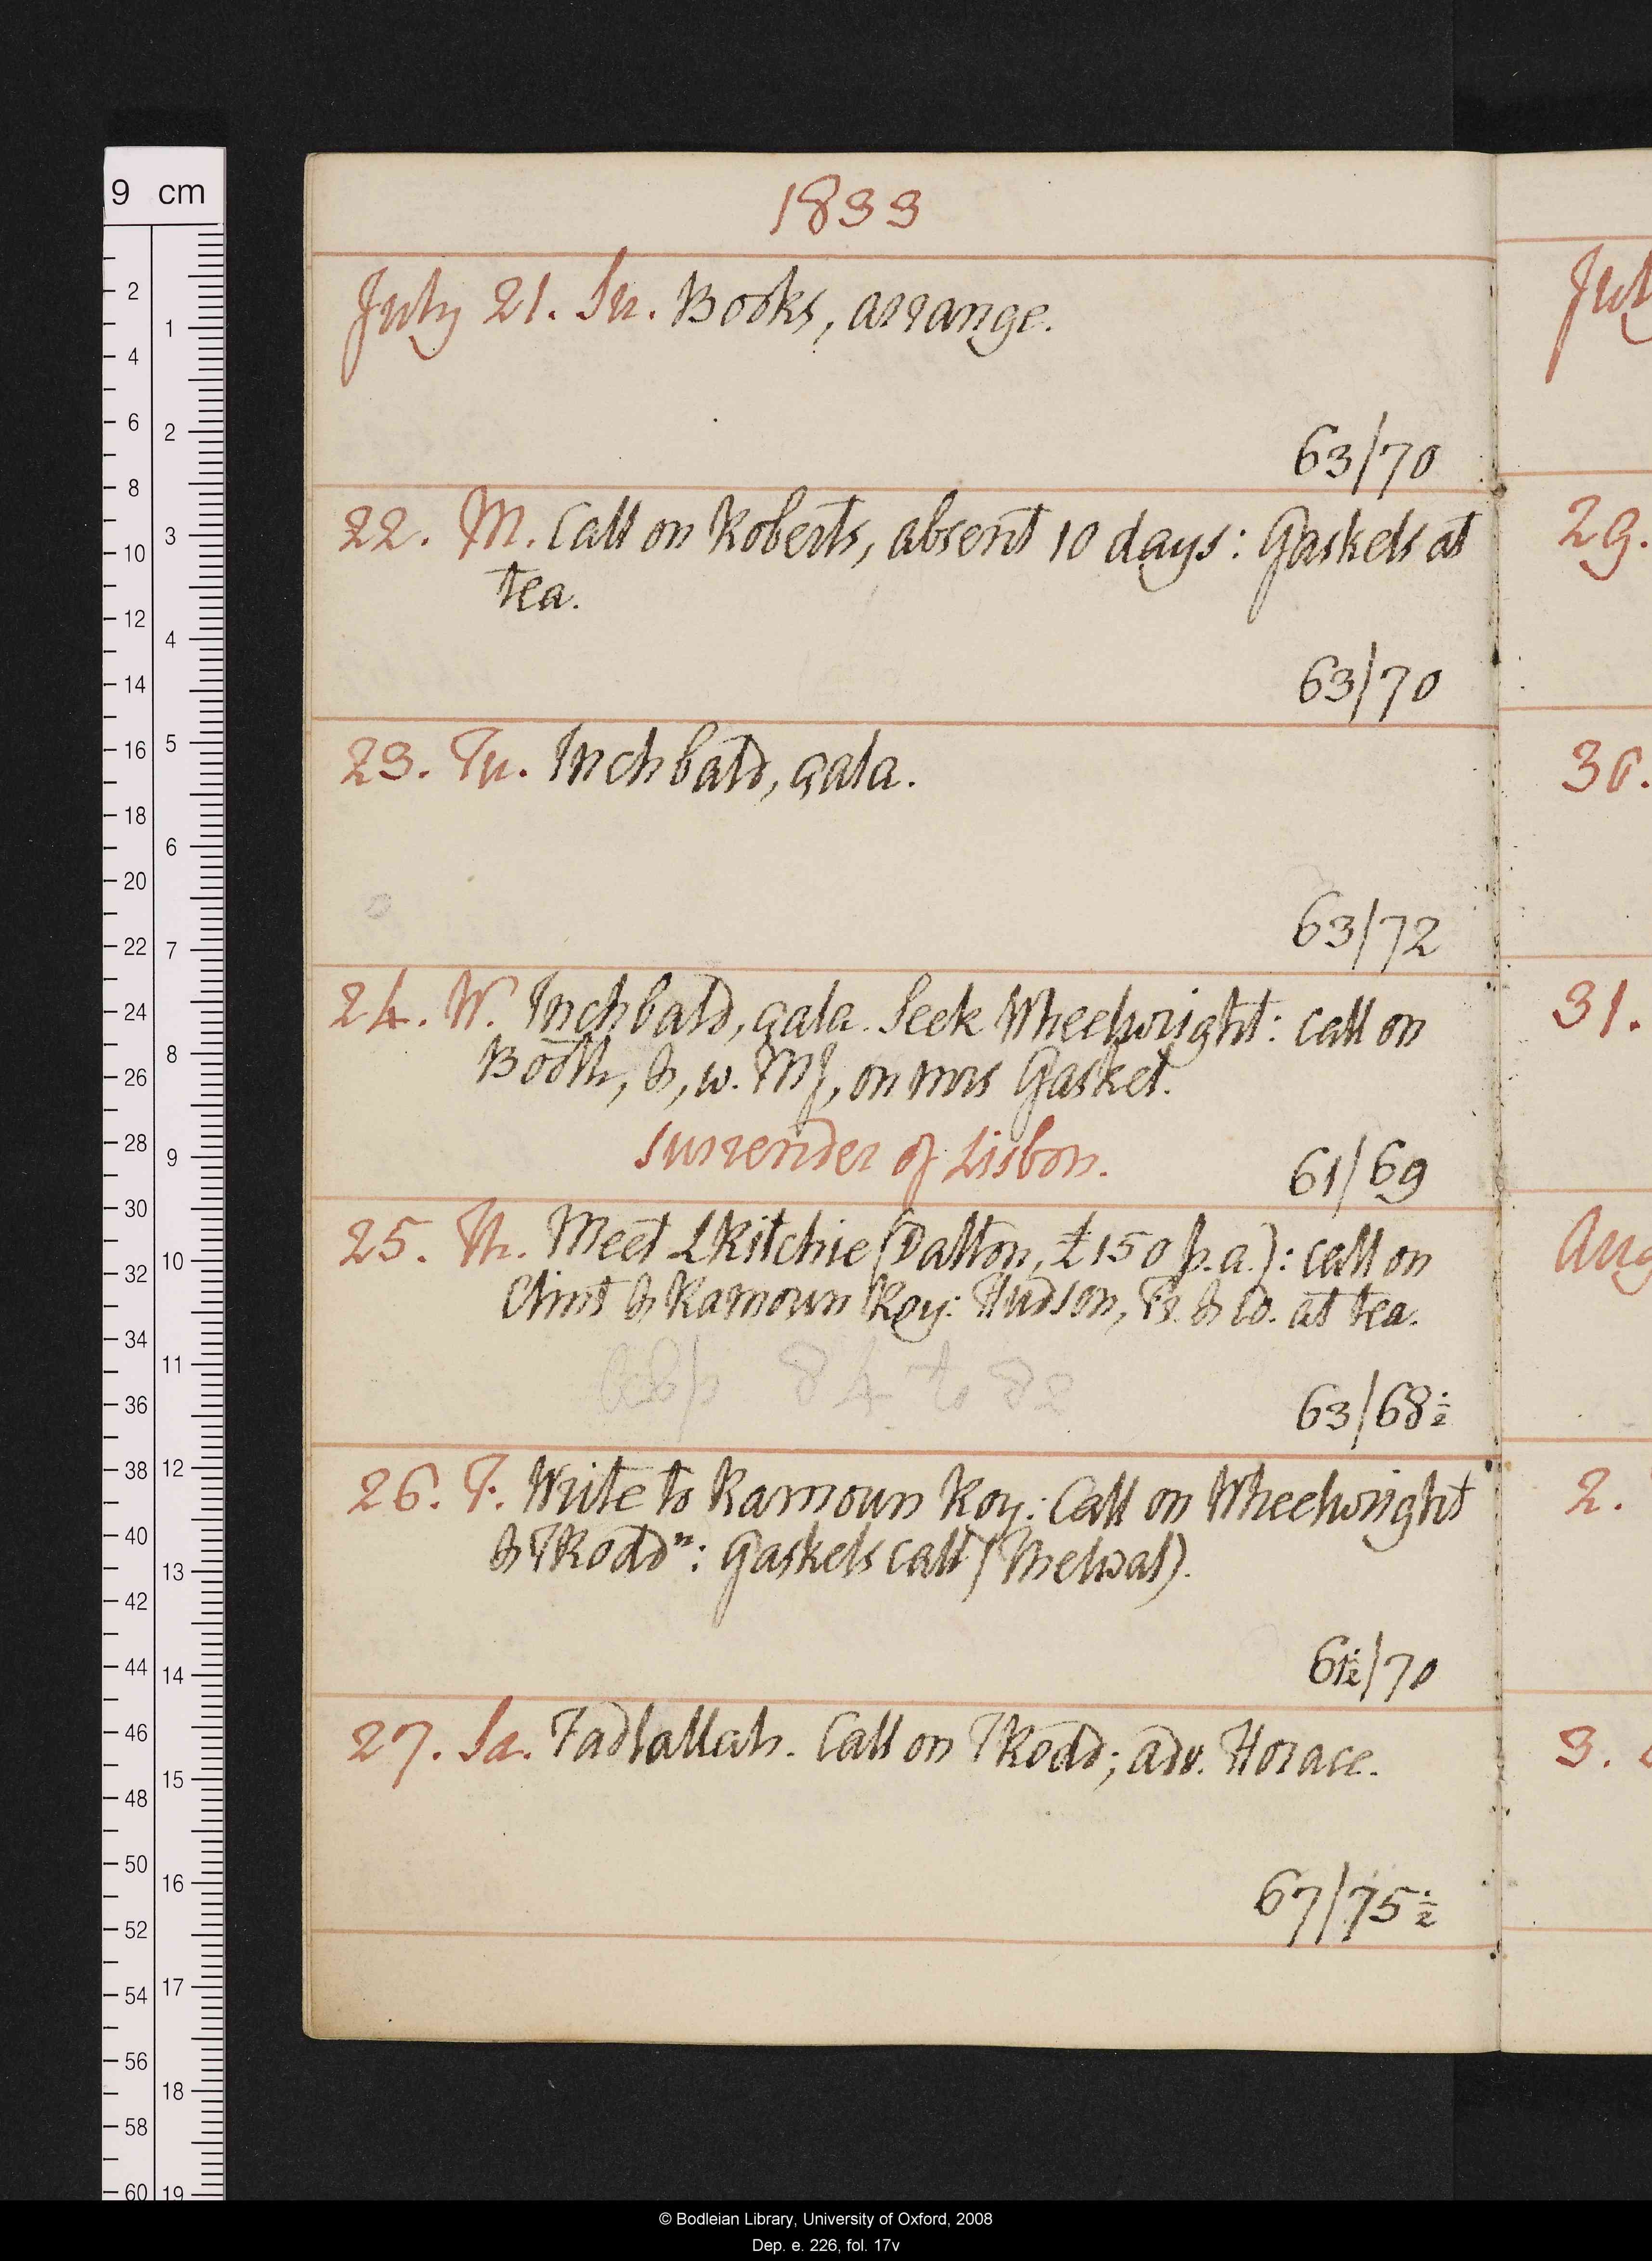 1833
July 21. Su. Books, arrange.
63/70
22. M. Call on Roberts, absent 10 days: Gaskels at
tea.
63/70
23. Tu. Inchbald, gala.
63/72
24. W. Inchbald, gala. Seek Wheelwright: call on
Booth, &, w. MJ, on mrs Gaskel.
Surrender of Lisbon.
61/69
25. Th. Meet LRitchie (Dalton, £150 p.a.): call on
Clint & Ramoun Roy: Hudson, Fr. & Co. at tea.
63/68½
26. F. Write to Ramoun Roy: Call on Wheelwright
& TRoddⁿ: Gaskels call (Thelwal).
61½/70
27. Sa. Fadlallah. Call on TRodd; adv. Horace.
67/75½
Jul
29.
30.
31.
Aug
2.
3.
9 cm
2
4
6
8
10
12
14
16
18
20
22
24
26
28
30
32
34
36
38
40
42
44
46
48
50
52
54
56
58
60
1
2
3
4
5
6
7
8
9
10
11
12
13
14
15
16
17
18
19
© Bodleian Library, University of Oxford, 2008
Dep. e. 226, fol. 17v